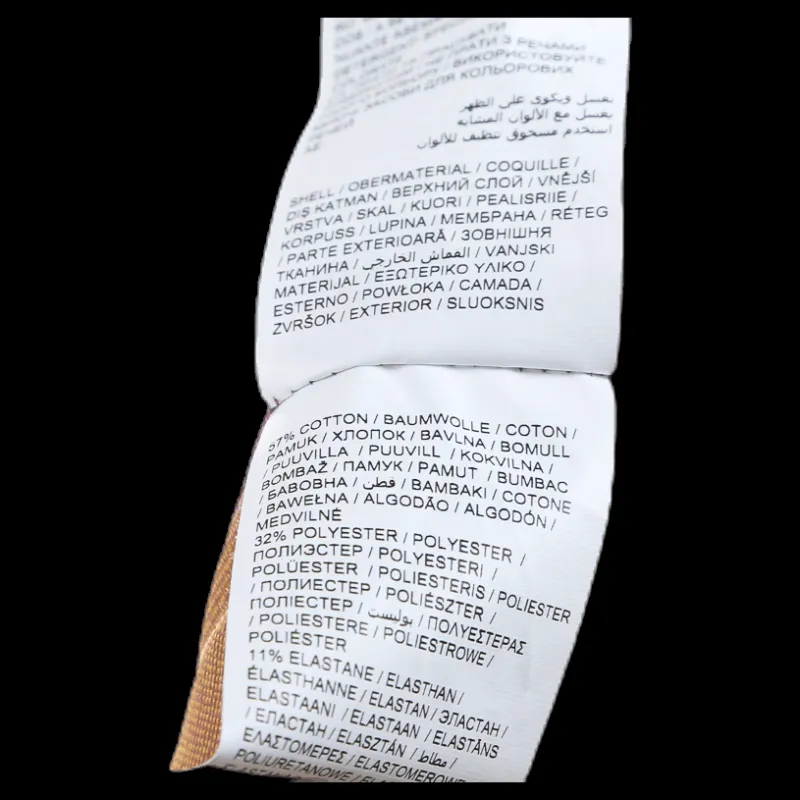 ПРАТИ З РЕЧАМИ
ВИКОРИСТОВУЙТЕ
ЗАСОБИ ДЛЯ КОЛЬОРОВИХ
يغسل ويكوى على الظهر
يغسل مع الألوان المشابه
استخدم مسحوق تنظيف للألوان
SHELL / OBERMATERIAL / COQUILLE /
DIŞ KATMAN / ВЕРХНИЙ СЛОЙ / VNĚJŠÍ
VRSTVA / SKAL / KUORI / PEALISRIIE /
KORPUSS / LUPINA / МЕМБРАНА / RÉTEG
/ PARTE EXTERIOARĂ / ЗОВНІШНЯ
ТКАНИНА / القماش الخارجي / VANJSKI
MATERIJAL / ΕΞΩΤΕΡΙΚΟ ΥΛΙΚΟ /
ESTERNO / POWŁOKA / CAMADA /
ZVRŠOK / EXTERIOR / SLUOKSNIS
57% COTTON / BAUMWOLLE / COTON /
PAMUK / ХЛОПОК / BAVLNA / BOMULL
/ PUUVILLA / PUUVILL / KOKVILNA /
BOMBAŽ / ПАМУК / PAMUT / BUMBAC
/ БАВОВНА / قطن / BAMBAKI / COTONE
/ BAWEŁNA / ALGODÃO / ALGODÓN /
MEDVILNĖ
32% POLYESTER / POLYESTER /
ПОЛИЭСТЕР / POLYESTERI /
POLÜESTER / POLIESTERIS / POLIESTER
/ ПОЛИЕСТЕР / POLIÉSZTER /
ПОЛІЕСТЕР / بوليست / ΠΟΛΥΕΣΤΕΡΑΣ
/ POLIESTERE / POLIESTROWE /
POLIÉSTER
11% ELASTANE / ELASTHAN /
ÉLASTHANNE / ELASTAN / ЭЛАСТАН /
ELASTAANI / ELASTAAN / ELASTĀNS
/ ЕЛАСТАН / ELASZTÁN / مطاط /
ΕΛΑΣΤΟΜΕΡΕΣ / ELASTOMEROWE
POLIURETANOWE /